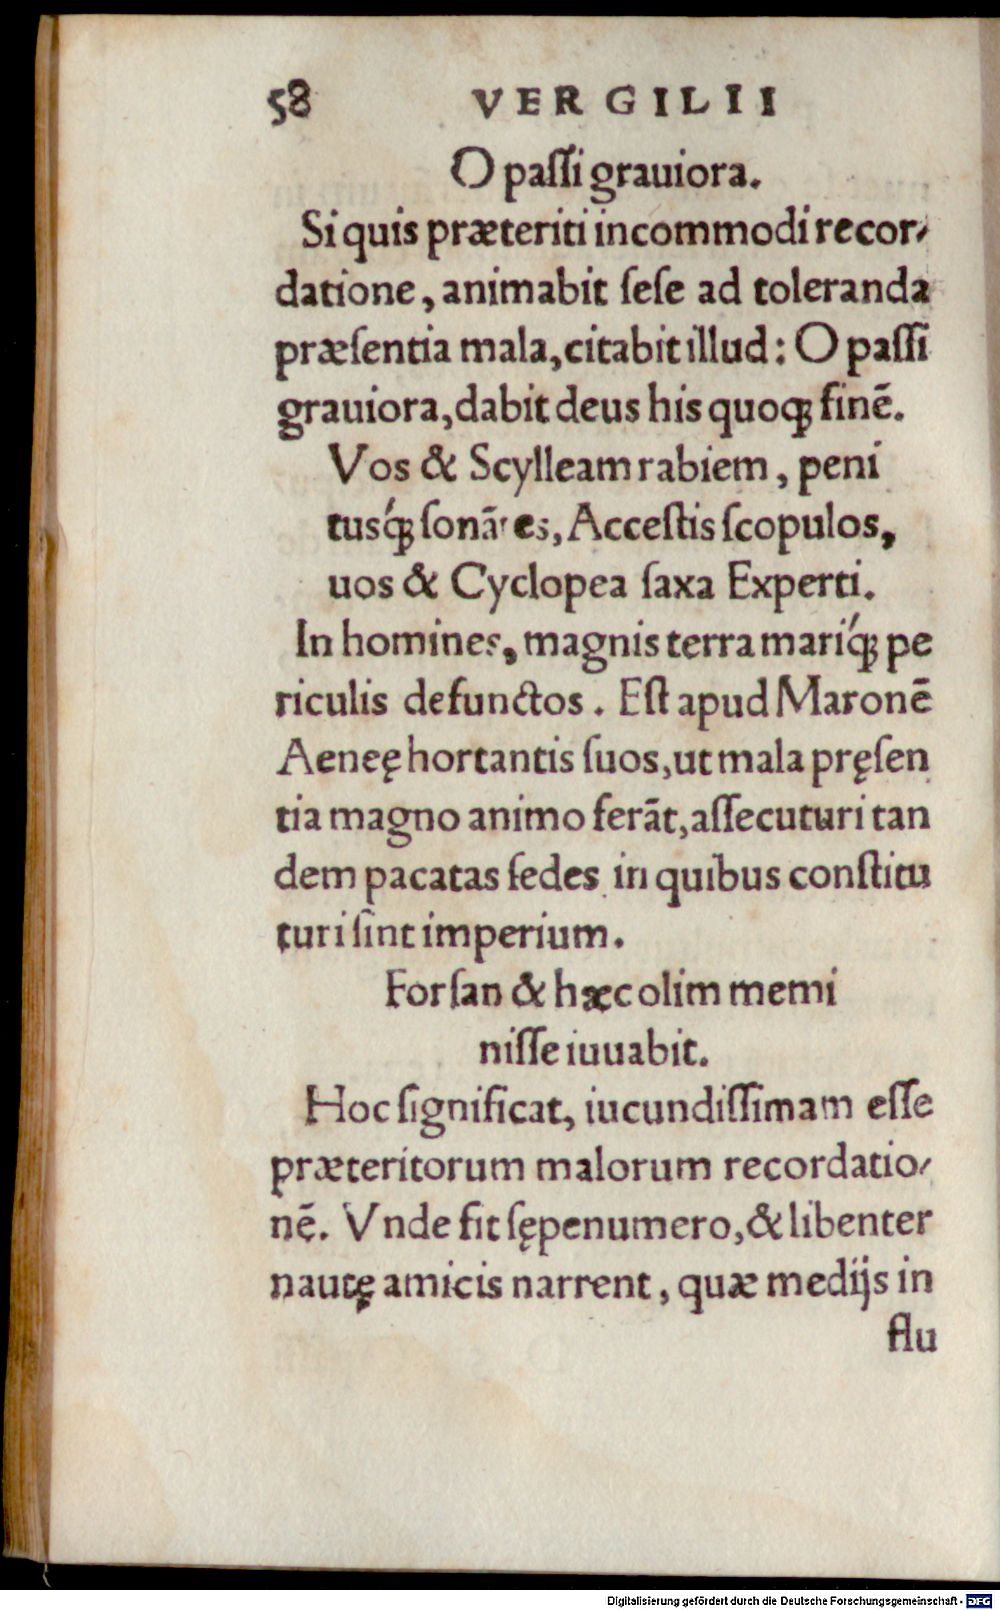 58 VERGILII
O paſſi grauiora.
Si quis præteriti incommodi recor⸗
datione, animabit ſeſe ad toleranda
præſentia mala, citabit illud: O paſſi
grauiora, dabit deus his quoqꝫ finē.
Vos & Scylleam rabiem, peni
tusq́ꝫ ſonātes, Acceſtis ſcopulos,
uos & Cyclopea ſaxa Experti.
In homines, magnis terra mariq́ꝫ pe
riculis defunctos. Eſt apud Maronē
Aeneę hortantis ſuos, ut mala pręſen
tia magno animo ferāt, aſſecuturi tan
dem pacatas ſedes in quibus conſtitu
turi ſint imperium.
Forſan & hæc olim memi
niſſe iuuabit.
Hoc ſignificat, iucundiſſimam eſſe
præteritorum malorum recordatio⸗
nē. Vnde fit ſępenumero, & libenter
nautę amicis narrent, quæ medijs in
flu
Digitalisierung gefördert durch die Deutsche Forschungsgemeinschaft - DFG